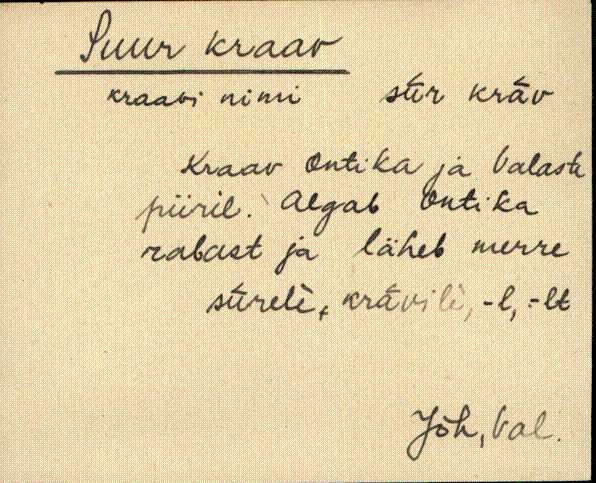 Suur kraav
kraavi nimi sūr krāv
Kraav Ontika ja Valaste
piiril. Algab Ontika
rabast ja läheb merre
sūrelè, krāvilè, -l, -lt
Jõh, Val.